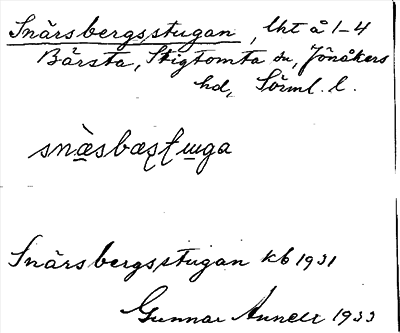 Snärsbergsstugan, lht å 1-4
Bärsta, Stigtomta sn, Jönåkers
hd, Sörml. l.
Snärsbergsstugan kb 1931
Gunnar 1933